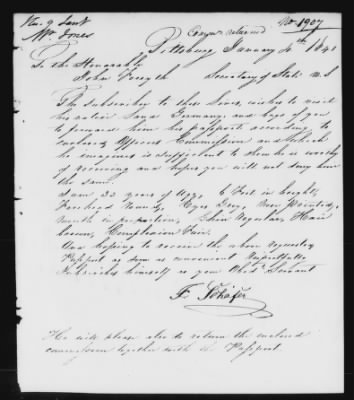 Mr. Jones
Comn. returned
No. 1907
Pittsburg January 4th 1841
To the Honorable
John Forsyth Secretary of State U.S.
The Subscriber to these Lines, wishes to visit
his native Land Germany and begs of you
to forward him his passport according to
enclosed Officers Commission and which
he imagines is sufficient to show he is worthy
of receiving and hopes you will not deny him
the same.
I am 32 years of Age, 6 Feet in height,
Forehead Round, Eyes Grey, Nose Pointed,
mouth in proportion, Chin Regular, Hair
brown, Complexion Fair.
And hoping to receive the above requested
Passport as soon as convenient Respectfully
Subscribes himself as your Obdt. Servant
F. Schäfer
He will please also to return the enclosed
commission together with the Passport